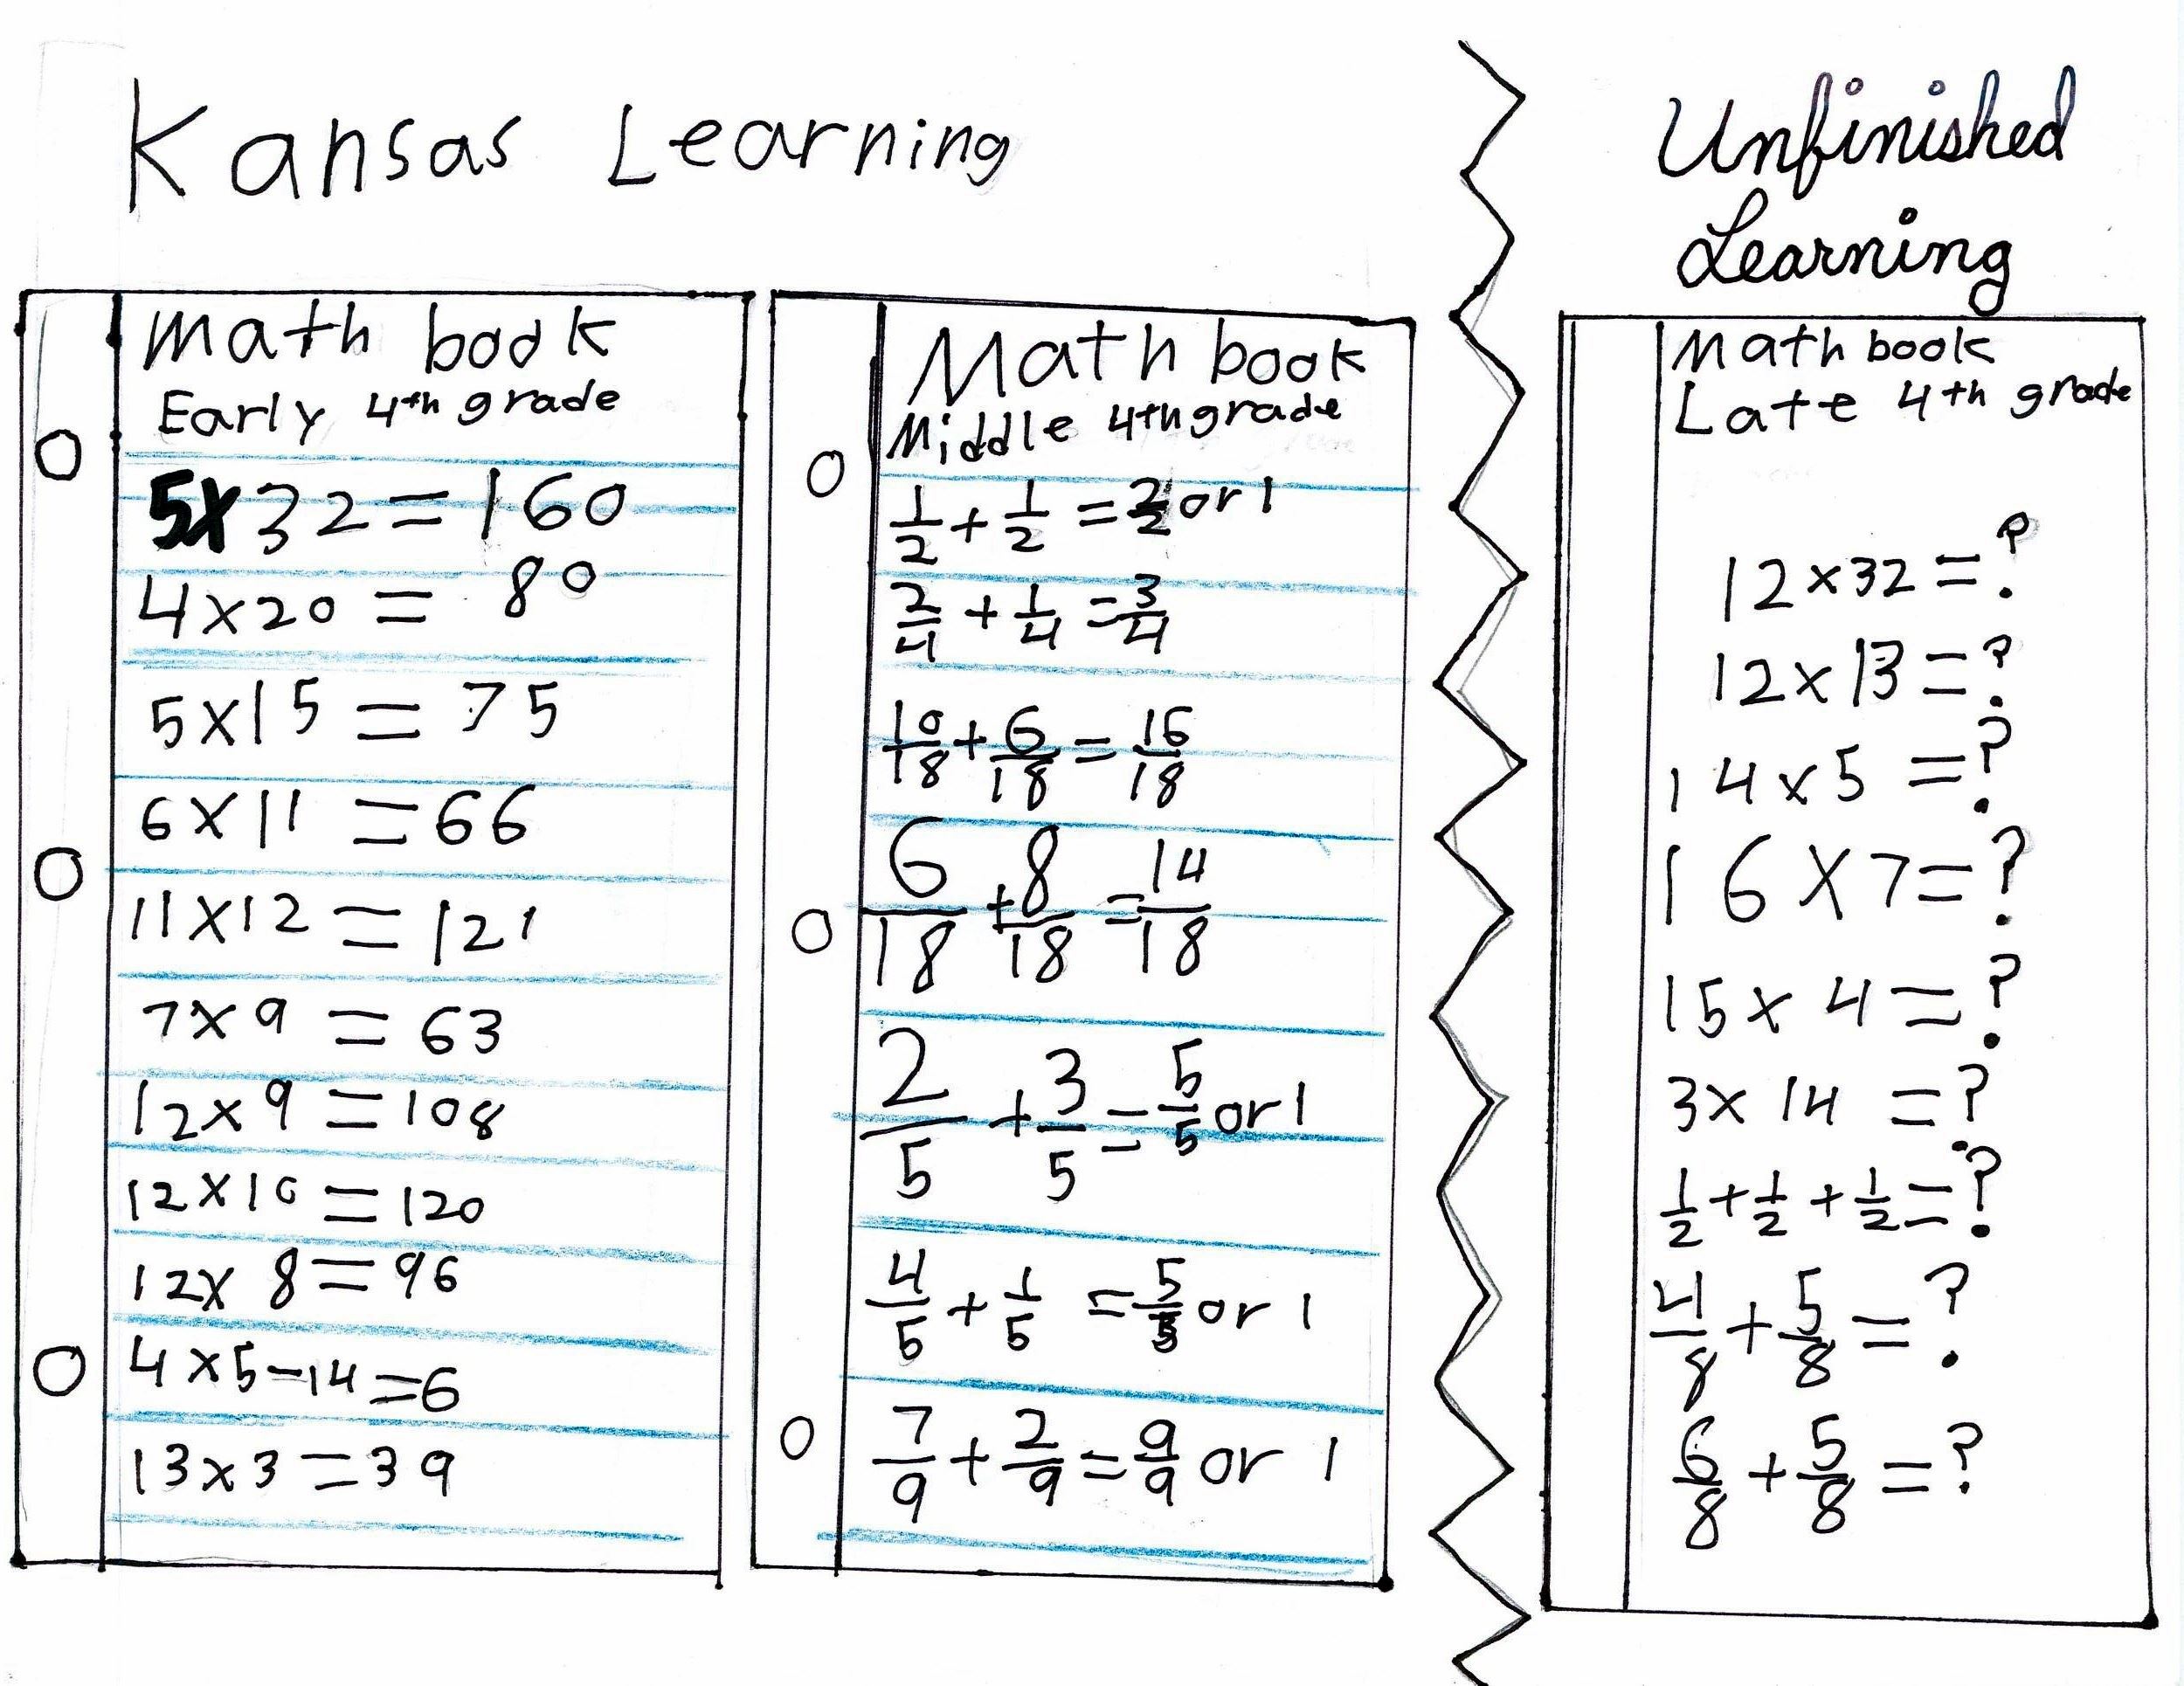 Kansas Learning
Math book
Early 4th grade
5x32=160
4x20=80
5x15=75
6x11=66
11x12=121
7x9=63
12x9=108
12x10=120
12x8=96
4x5-14=6
13x3=39
Math book
Middle 4th grade
1/2+1/2=2/2 or 1
2/4+1/4=3/4
10/18+6/18=16/18
6/18+8/18=14/18
2/5+3/5=5/5 or 1
4/5+1/5=5/5 or 1
7/9+2/9=9/9 or 1
Unfinished
Learning
Math book
Late 4th grade
12x32=?
12x13=?
14x5=?
16x7=?
15x4=?
3x14=?
1/2+1/2+1/2=?
4/8+5/8=?
6/8+5/8=?